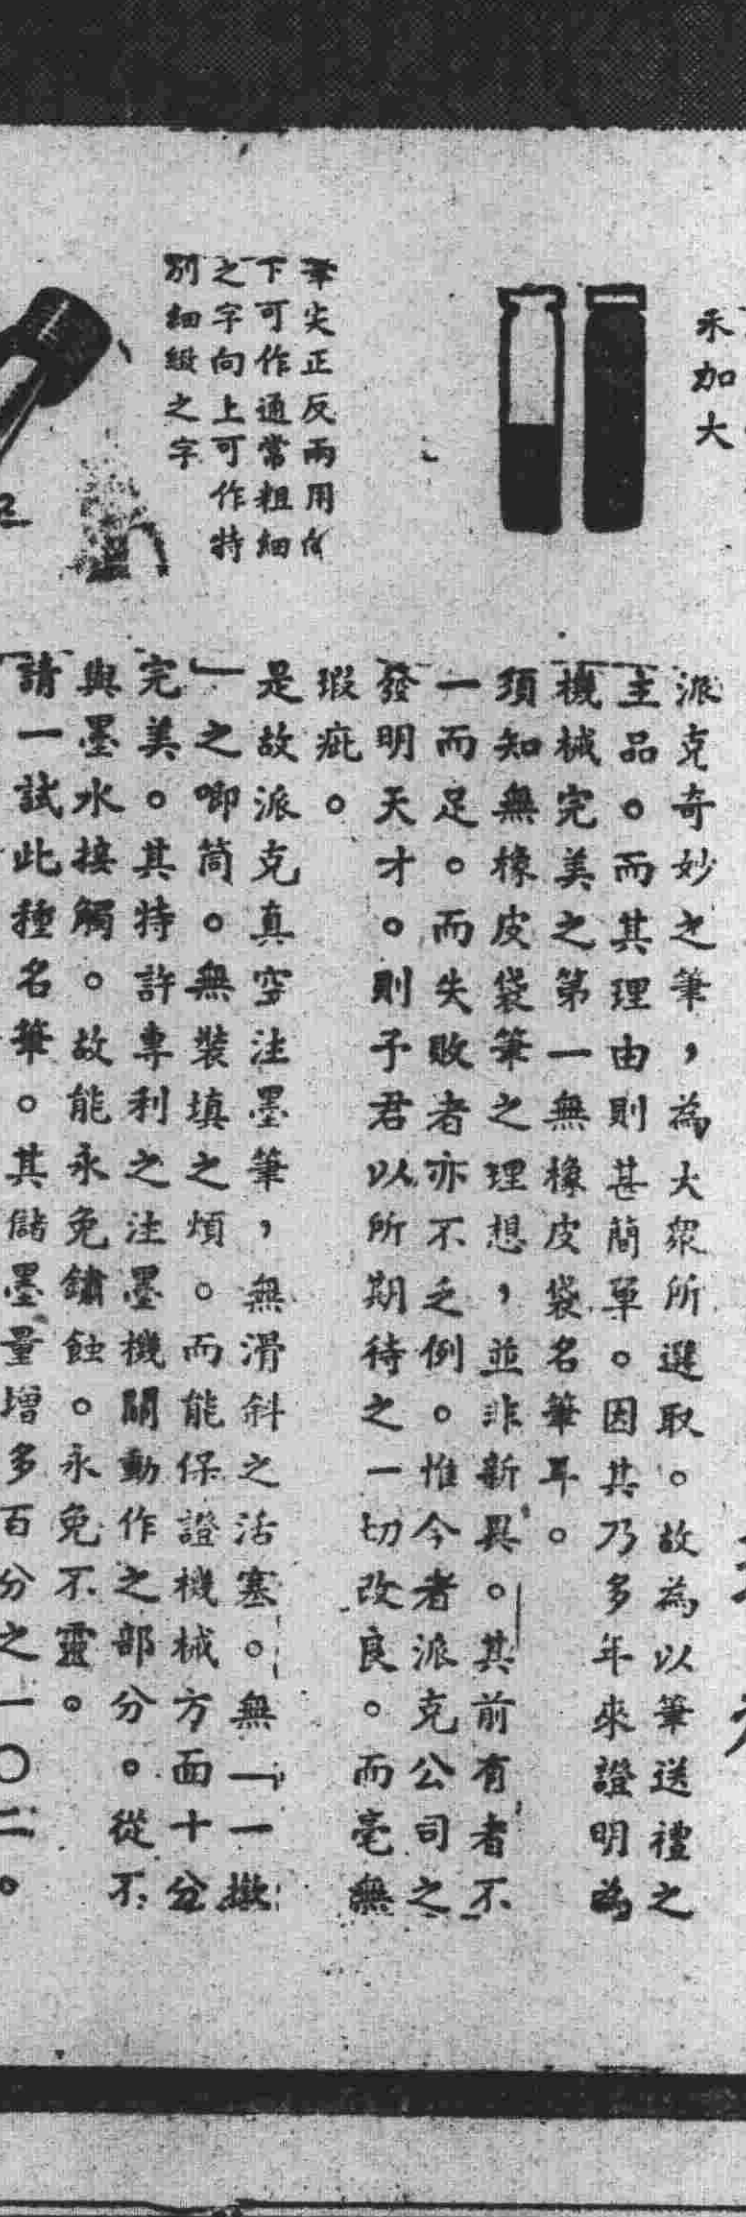 禾加大
筆尖正反兩用向
下可作通常粗細
之字向上可作特
別細緻之字
派克奇妙之筆,為大衆所選取。故為以筆送禮之
主品。而其理由則甚簡單。因其乃多年來證明為
機械完美之第一無橡皮袋名筆耳。
須知無橡皮袋筆之理想,並非新異。其前有者不
一而足。而失敗者亦不乏例。惟今者派克公司之
發明天才。則予君以所期待之一切改良。而毫無
瑕疵。
是故派克真空注墨筆,無滑斜之活塞。無「一撳
」之唧筒。無裝填之煩。而能保證機械方面十分
完美。其特許專利之注墨機關動作之部分。從不
與墨水接觸。故能永免鏽蝕。永免不靈。
請一試此種名筆。其儲墨量增多百分之一〇二。